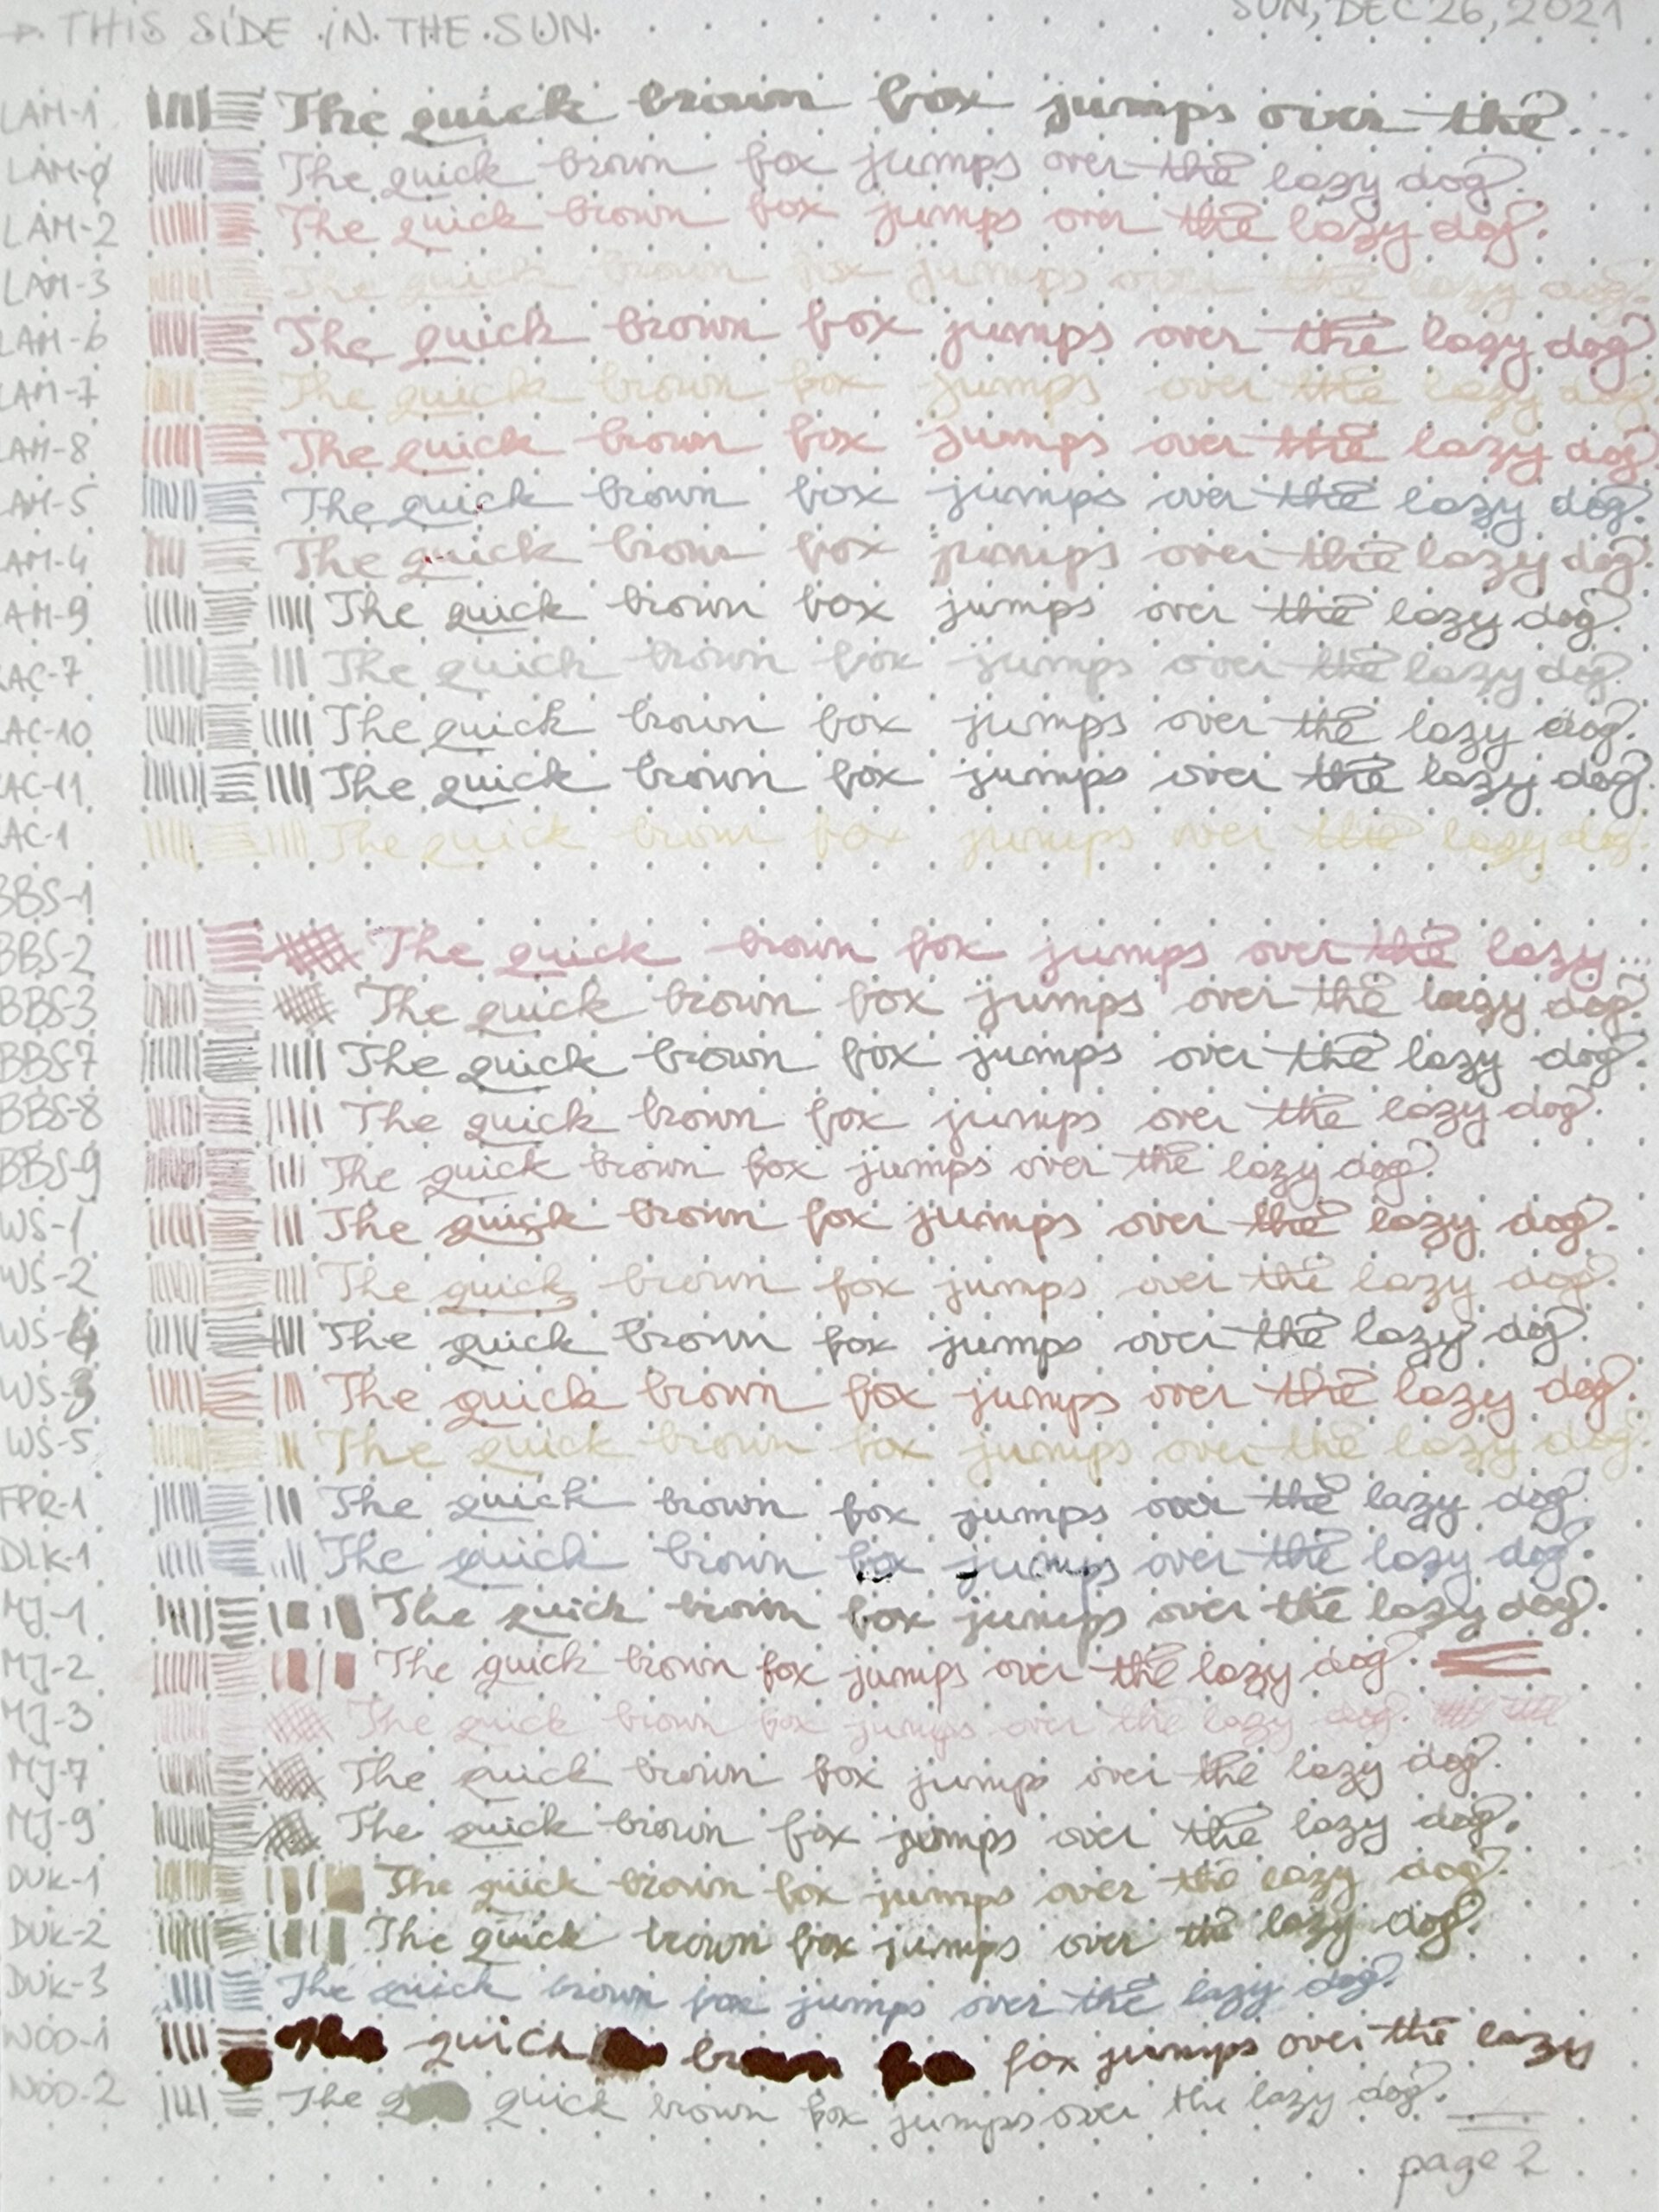 → THIS SIDE IN THE SUN.
SUN, DEC 26, 2021
LAM-1 The quick brown fox jumps over the...
LAM-0 The quick brown fox jumps over the lazy dog.
LAM-2 The quick brown fox jumps over the lazy dog.
LAM-3 The quick brown fox jumps over the lazy dog.
LAM-6 The quick brown fox jumps over the lazy dog
LAM-7 The quick brown fox jumps over the lazy dog.
LAM-8 The quick brown fox jumps over the lazy dog
AM-5 The quick brown fox jumps over the lazy dog.
AM-4 The quick brown fox jumps over the lazy dog.
AM-9 The quick brown fox jumps over the lazy dog.
AC-7 The quick brown fox jumps over the lazy dog.
AC-10 The quick brown fox jumps over the lazy dog.
AC-11 The quick brown fox jumps over the lazy dog.
AC-1 The quick brown fox jumps over the lazy dog.
BBS-1
BBS-2 The quick brown fox jumps over the lazy...
BBS-3 The quick brown fox jumps over the lazy dog.
BBS7 The quick brown fox jumps over the lazy dog.
BBS-8 The quick brown fox jumps over the lazy dog.
BBS-9 The quick brown fox jumps over the lazy dog.
WS-1 The quick brown fox jumps over the lazy dog.
WS-2 The quick brown fox jumps over the lazy dog.
WS-4 The quick brown fox jumps over the lazy dog.
WS-3 The quick brown fox jumps over the lazy dog.
WS-5 The quick brown fox jumps over the lazy dog.
FPR-1 The quick brown fox jumps over the lazy dog.
DLK-1 The quick brown fox jumps over the lazy dog.
MJ-1 The quick brown fox jumps over the lazy dog.
MJ-2 The quick brown fox jumps over the lazy dog.
MJ-3 The quick brown fox jumps over the lazy dog.
MJ-7 The quick brown fox jumps over the lazy dog.
MJ-9 The quick brown fox jumps over the lazy dog.
DUK-1 The quick brown fox jumps over the lazy dog.
DUK-2 The quick brown fox jumps over the lazy dog.
DUK-3 The quick brown fox jumps over the lazy dog.
NOD-1 The quick brown fox jumps over the lazy
NOD-2 The quick brown fox jumps over the lazy dog.
page 2